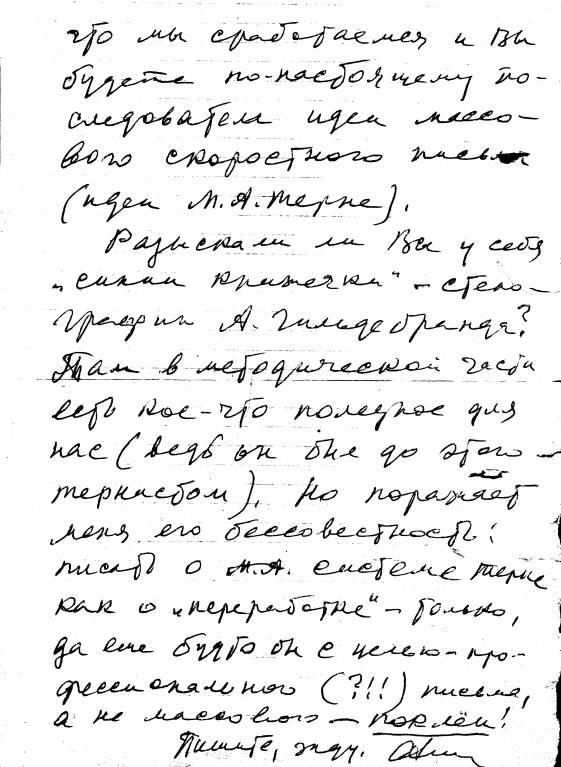 что мы сработаемся и Вы
будете по-настоящему по-
следователем идеи массо-
вого скоростного письма
(идеи М.А.Терне).
Разыскали ли Вы у себя
„синии книжечки" - стено-
графии А. Гильдебранда?
Там в методической части
есть кое-что полезное для
нас (ведь он был до этого
тернистом). Но поражает
меня его бессовестность:
писать о М.А. системе Терне
как о „переработке" - только,
да еще будто он с целью - про-
фессионального (?!!) письма,
а не массового - поклёп!
Пишите, жду.